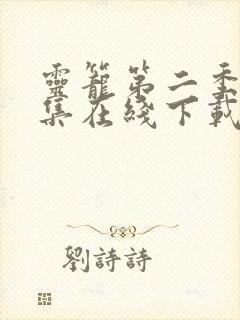 靈籠第二季
集在綫下載
劉詩詩